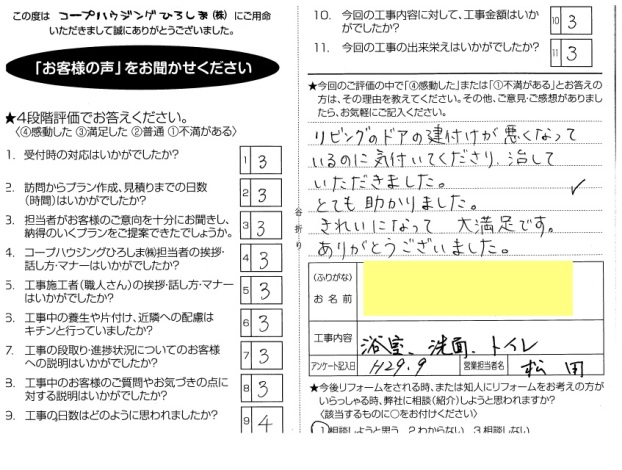 この度は コープハウジングひろしま(株) にご用命
いただきまして誠にありがとうございました。
「お客様の声」をお聞かせください
★4段階評価でお答えください。
〈④感動した ③満足した ②普通 ①不満がある〉
1. 受付時の対応はいかがでしたか?
1 3
2. 訪問からプラン作成、見積りまでの日数
(時間)はいかがでしたか?
2 3
3. 担当者がお客様のご意向を十分にお聞きし、
納得のいくプランをご提案できたでしょうか。
3 3
4. コープハウジングひろしま㈱担当者の挨拶・
話し方・マナーはいかがでしたか?
4 3
5. 工事施工者(職人さん)の挨拶・話し方・マナー
はいかがでしたか?
5 3
6. 工事中の養生や片付け、近隣への配慮は
キチンと行っていましたか?
6 3
7. 工事の段取り・進捗状況についてのお客様
への説明はいかがでしたか?
7 3
8. 工事中のお客様のご質問やお気づきの点に
対する説明はいかがでしたか?
8 3
9. 工事の日数はどのように思われましたか?
9 4
谷折り
10. 今回の工事内容に対して、工事金額はいか
がでしたか?
10 3
11. 今回の工事の出来栄えはいかがでしたか?
11 3
★今回のご評価の中で「④感動した」または「①不満がある」とお答えの
方は、その理由を教えてください。その他、ご意見・ご感想がありました
ら、お気軽にご記入ください。
リビングのドアの建付けが悪くなって
いるのに気付いてくださり、治して
いただきました。
とても助かりました。
きれいになって 大満足です。
ありがとうございました。
(ふりがな)
お名前
工事内容
浴室、洗面、トイレ
アンケート記入日
H29.9
営業担当者名
松田
★今後リフォームをされる時、または知人にリフォームをお考えの方が
いらっしゃる時、弊社に相談(紹介)しようと思われますか?
〈該当するものに○をお付けください〉
1 相談しようと思う 2 わからない 3 相談しない